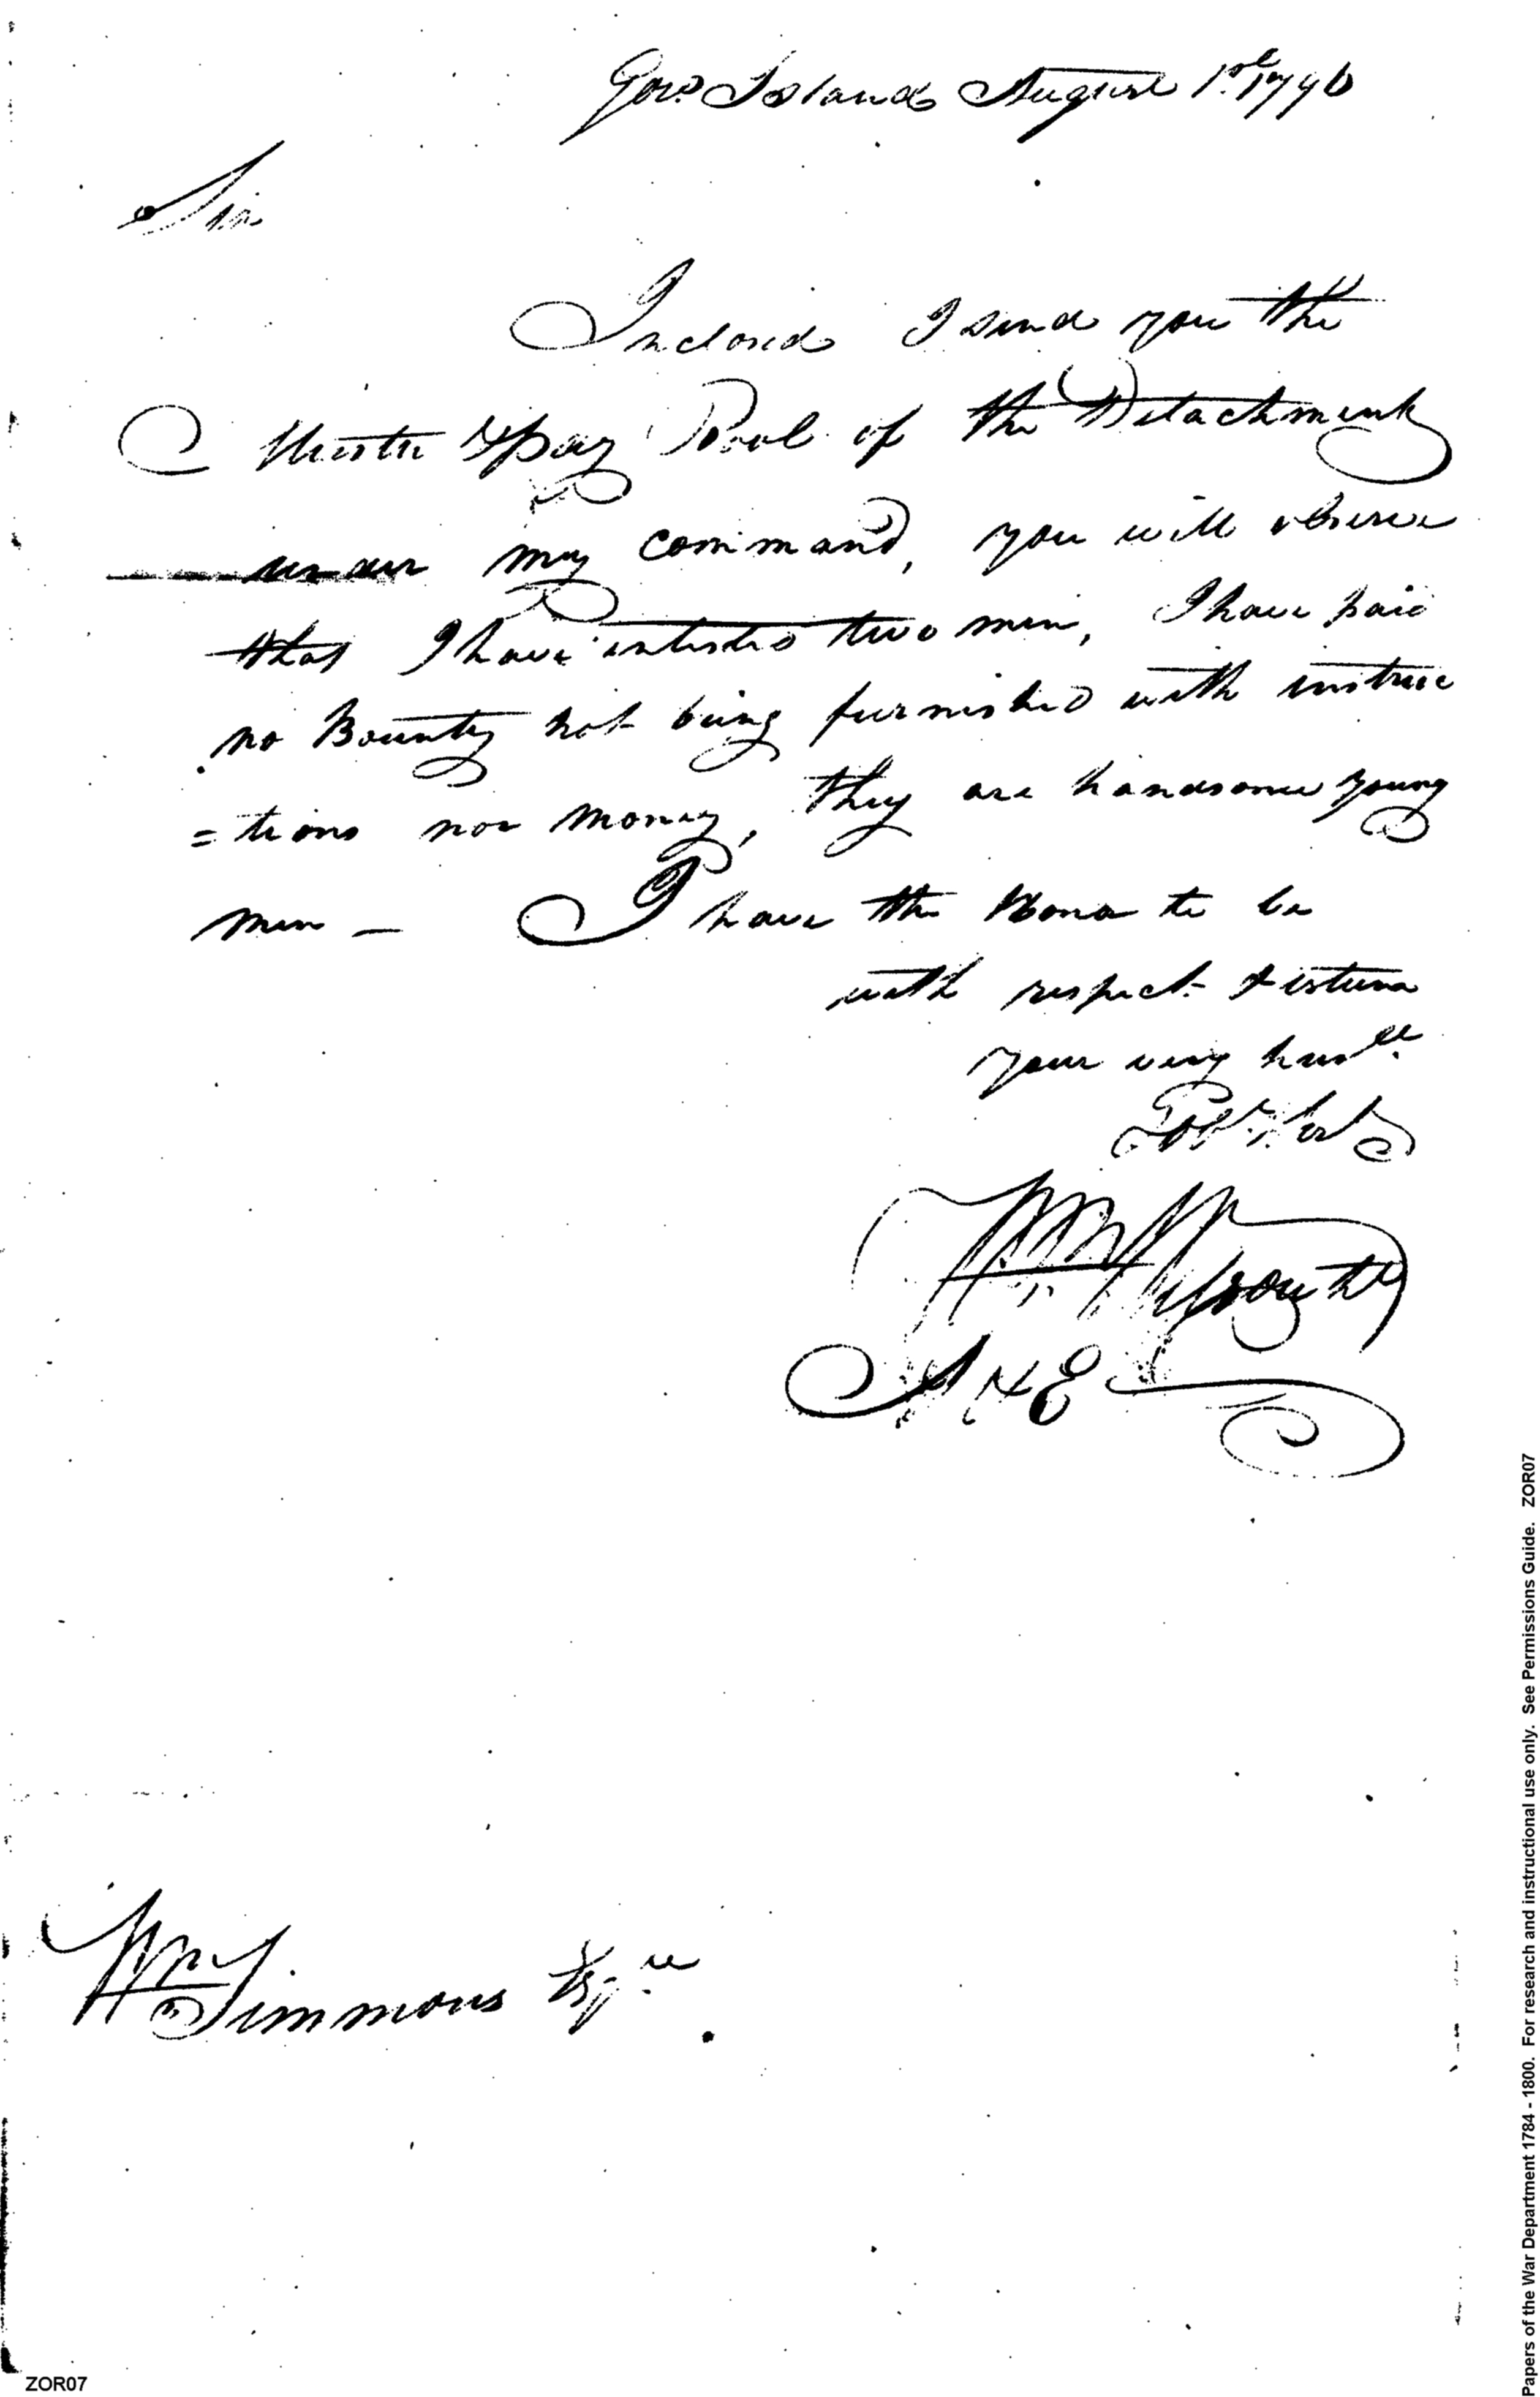 Govrs Island August 1st 1796
Sir
Inclosed I send you the
Muster & pay Rool of the Detachment
under my command, you will observe
that I have inlisted two men, I have paid
no Bounty not being furnished with instruc
=tions nor money, they are handsome young
men — I have the Honor to be
with respect & esteem
your very humle
Obt Sert
Wm Wilson
A & E
Wm Simmons Esqre
ZOR07
Papers of the War Department 1784 - 1800. For research and instructional use only. See Permissions Guide. ZOR07